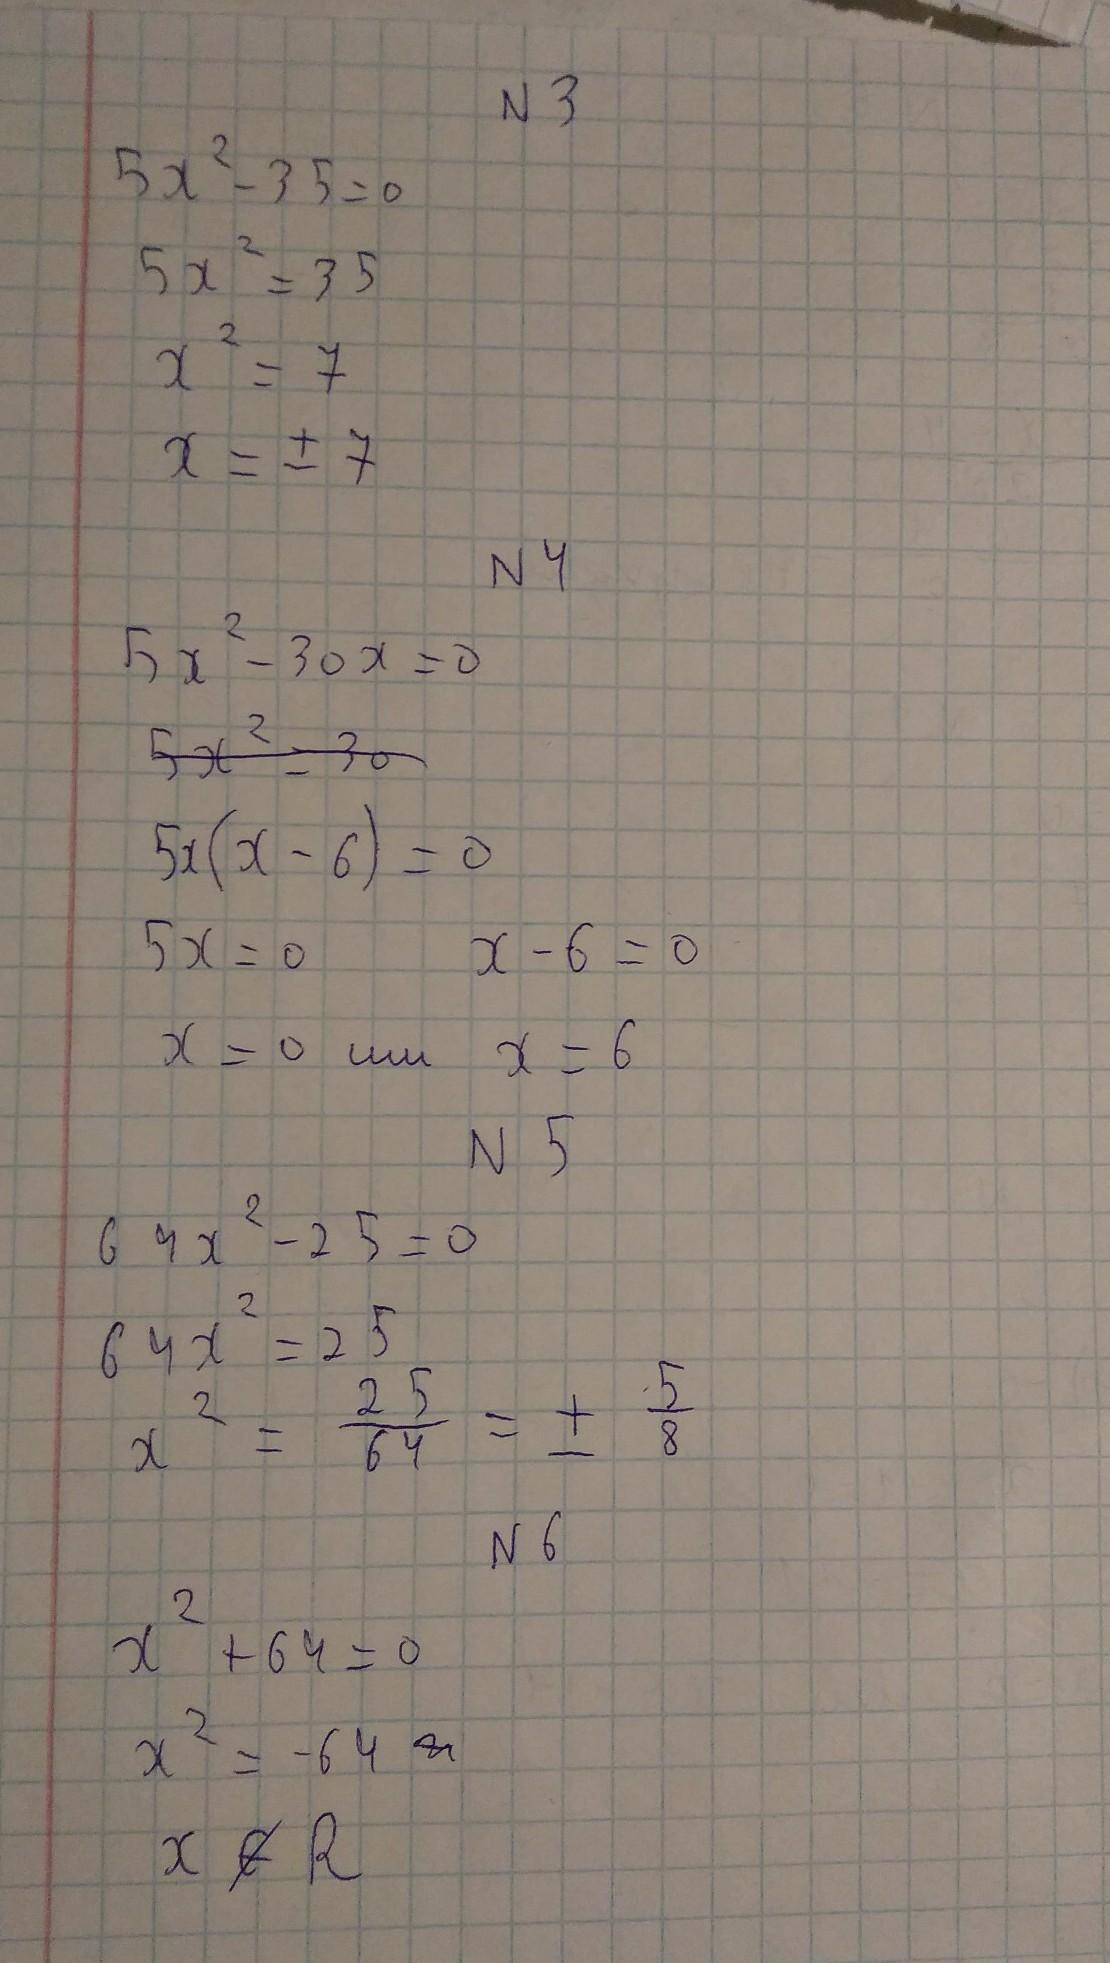 N 3
5x² - 35 = 0
5x² = 35
x² = 7
x = ± 7
N 4
5x² - 30x = 0
5x² = 30
5x(x - 6) = 0
5x = 0 x - 6 = 0
x = 0 или x = 6
N 5
64x² - 25 = 0
64x² = 25
x² = 25/64 = ± 5/8
N 6
x² + 64 = 0
x² = -64
x ∉ R